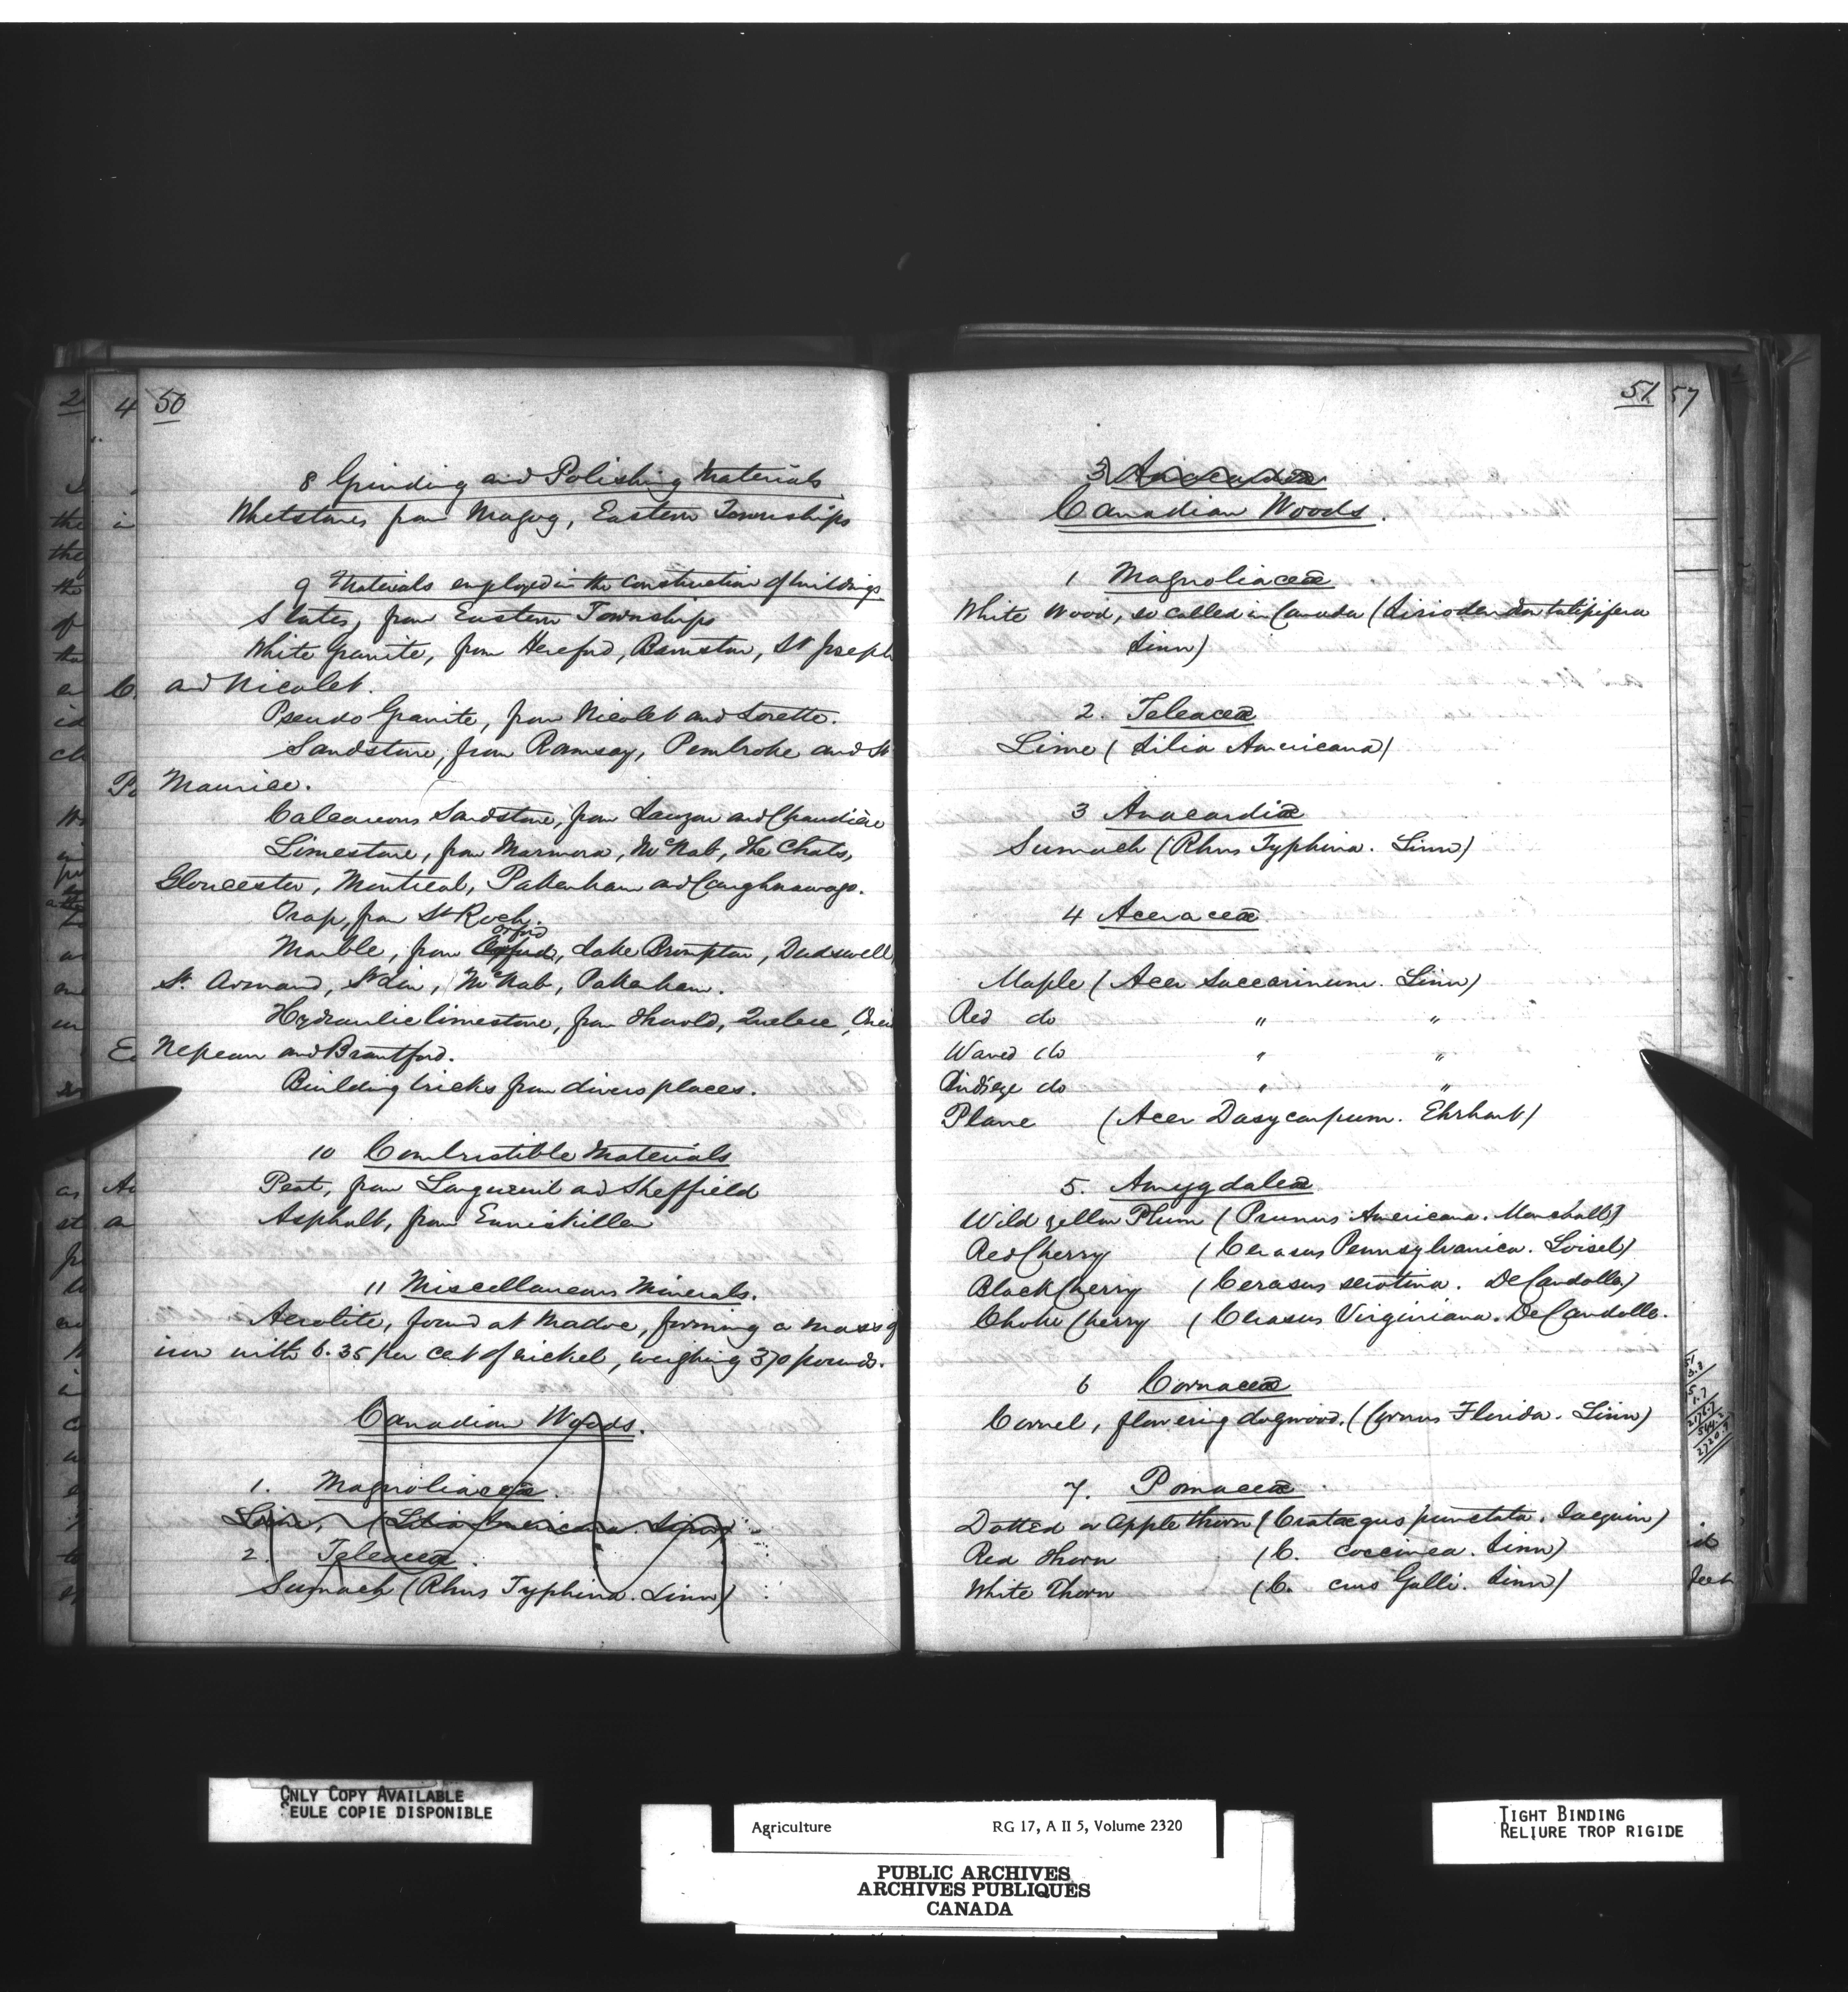 50
8 Grinding and Polishing Materials
Whetstones from Magog, Eastern Townships
9 Materials employed in the construction of buildings
Slates, from Eastern Townships
White Granite, from Hereford, Barnston, St Joseph
and Nicolet.
Pseudo Granite, from Nicolet and Lorette.
Sandstone, from Ramsay, Pembroke and St
Maurice.
Calcareous Sandstone, from Lauzon and Chaudière
Limestone, from Marmora, McNab, The Chats,
Gloucester, Montreal, Pakenham and Caughnawaga.
Trap, from St Roch.
Orford
Marble, from Oxford, Lake Brompton, Dudswell,
St. Armand, St Lin, McNab, Pakenham.
Hydraulic limestone, from Thorold, Quebec,
Nepean and Brantford.
Building bricks from divers places.
10 Combustible Materials
Peat, from Longueuil and Sheffield
Asphalt, from Enniskillen
11 Miscellaneous Minerals.
Aerolite, found at Madoc, forming a mass of
iron with 6.35 per cent of nickel, weighing 370 pounds.
Canadian Woods.
1. Magnoliaceæ.
Lime, (Tilia Americana. Linn)
2. Teleaceæ.
Sumach (Rhus Typhina. Linn)
51
3 Anacardiæ
Canadian Woods.
1 Magnoliaceæ
White Wood, so called in Canada (Liriodendron tulipifera
Linn)
2. Teleaceæ
Lime (Tilia Americana)
3 Anacardiæ
Sumach (Rhus Typhina. Linn)
4 Aceraceæ
Maple (Acer Saccarinum. Linn)
Red do " "
Waved do " "
Birdseye do " "
Plane (Acer Dasycarpum. Ehrhart)
5. Amygdaleæ
Wild yellow Plum (Prunus Americana. Marshall)
Red Cherry (Cerasus Pennsylvanica. Loisel)
Black Cherry (Cerasus serotina. DeCandolle)
Choke Cherry (Cerasus Virginiana. DeCandolle.
6 Cornaceæ
Cornel, flowering dogwood. (Cornus Florida. Linn)
7. Pomaceæ
Dotted or Apple thorn (Crataegus punctata. Jacquin)
Red Thorn (C. coccinea. Linn)
White Thorn (C. crus Galli. Linn)
57
ONLY COPY AVAILABLE
SEULE COPIE DISPONIBLE
Agriculture RG 17, A II 5, Volume 2320
PUBLIC ARCHIVES
ARCHIVES PUBLIQUES
CANADA
TIGHT BINDING
RELIURE TROP RIGIDE